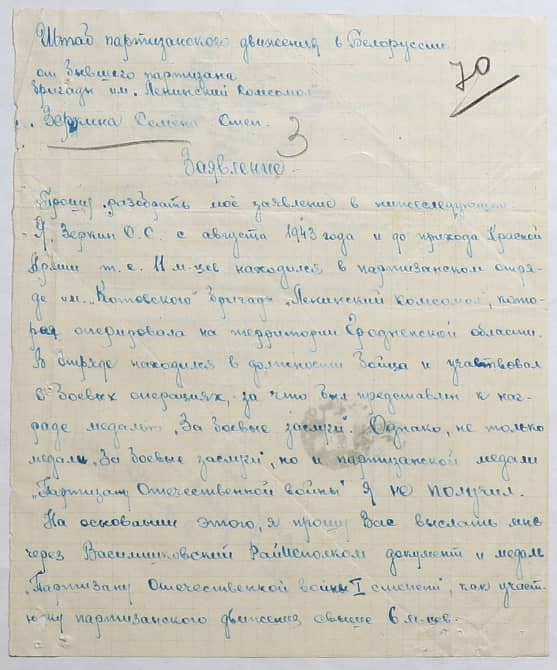 Штаб партизанского движения в Белоруссии
70
от бывшего партизана
бригады им. Ленинский комсомол"
Зеркина Семёна Степ.
3
Заявление
Прошу разобрать моё заявление в нижеследующем
Я, Зеркин С.С. с августа 1943 года и до прихода Красной
Армии т.е. 11 м-цев находился в партизанском отря-
де им. „Котовского" бригады „Ленинский комсомол", кото-
рая оперировала на территории Гродненской области.
В отряде находился в должности бойца и участвовал
в боевых операциях, за что был представлен к наг-
раде медалью „За боевые заслуги". Однако, не только
медали „За боевые заслуги", но и партизанской медали
„Партизану Отечественной войны" я не получил.
На основании этого, я прошу Вас выслать мне
через Василишковский Райисполком документ и медаль
„Партизану Отечественной войны I степени", как участ-
нику партизанского движения свыше 6 м-цев.